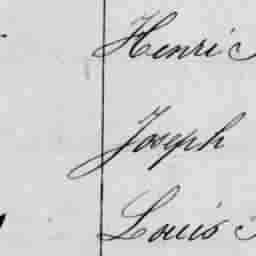 Henri
Joseph
Louis